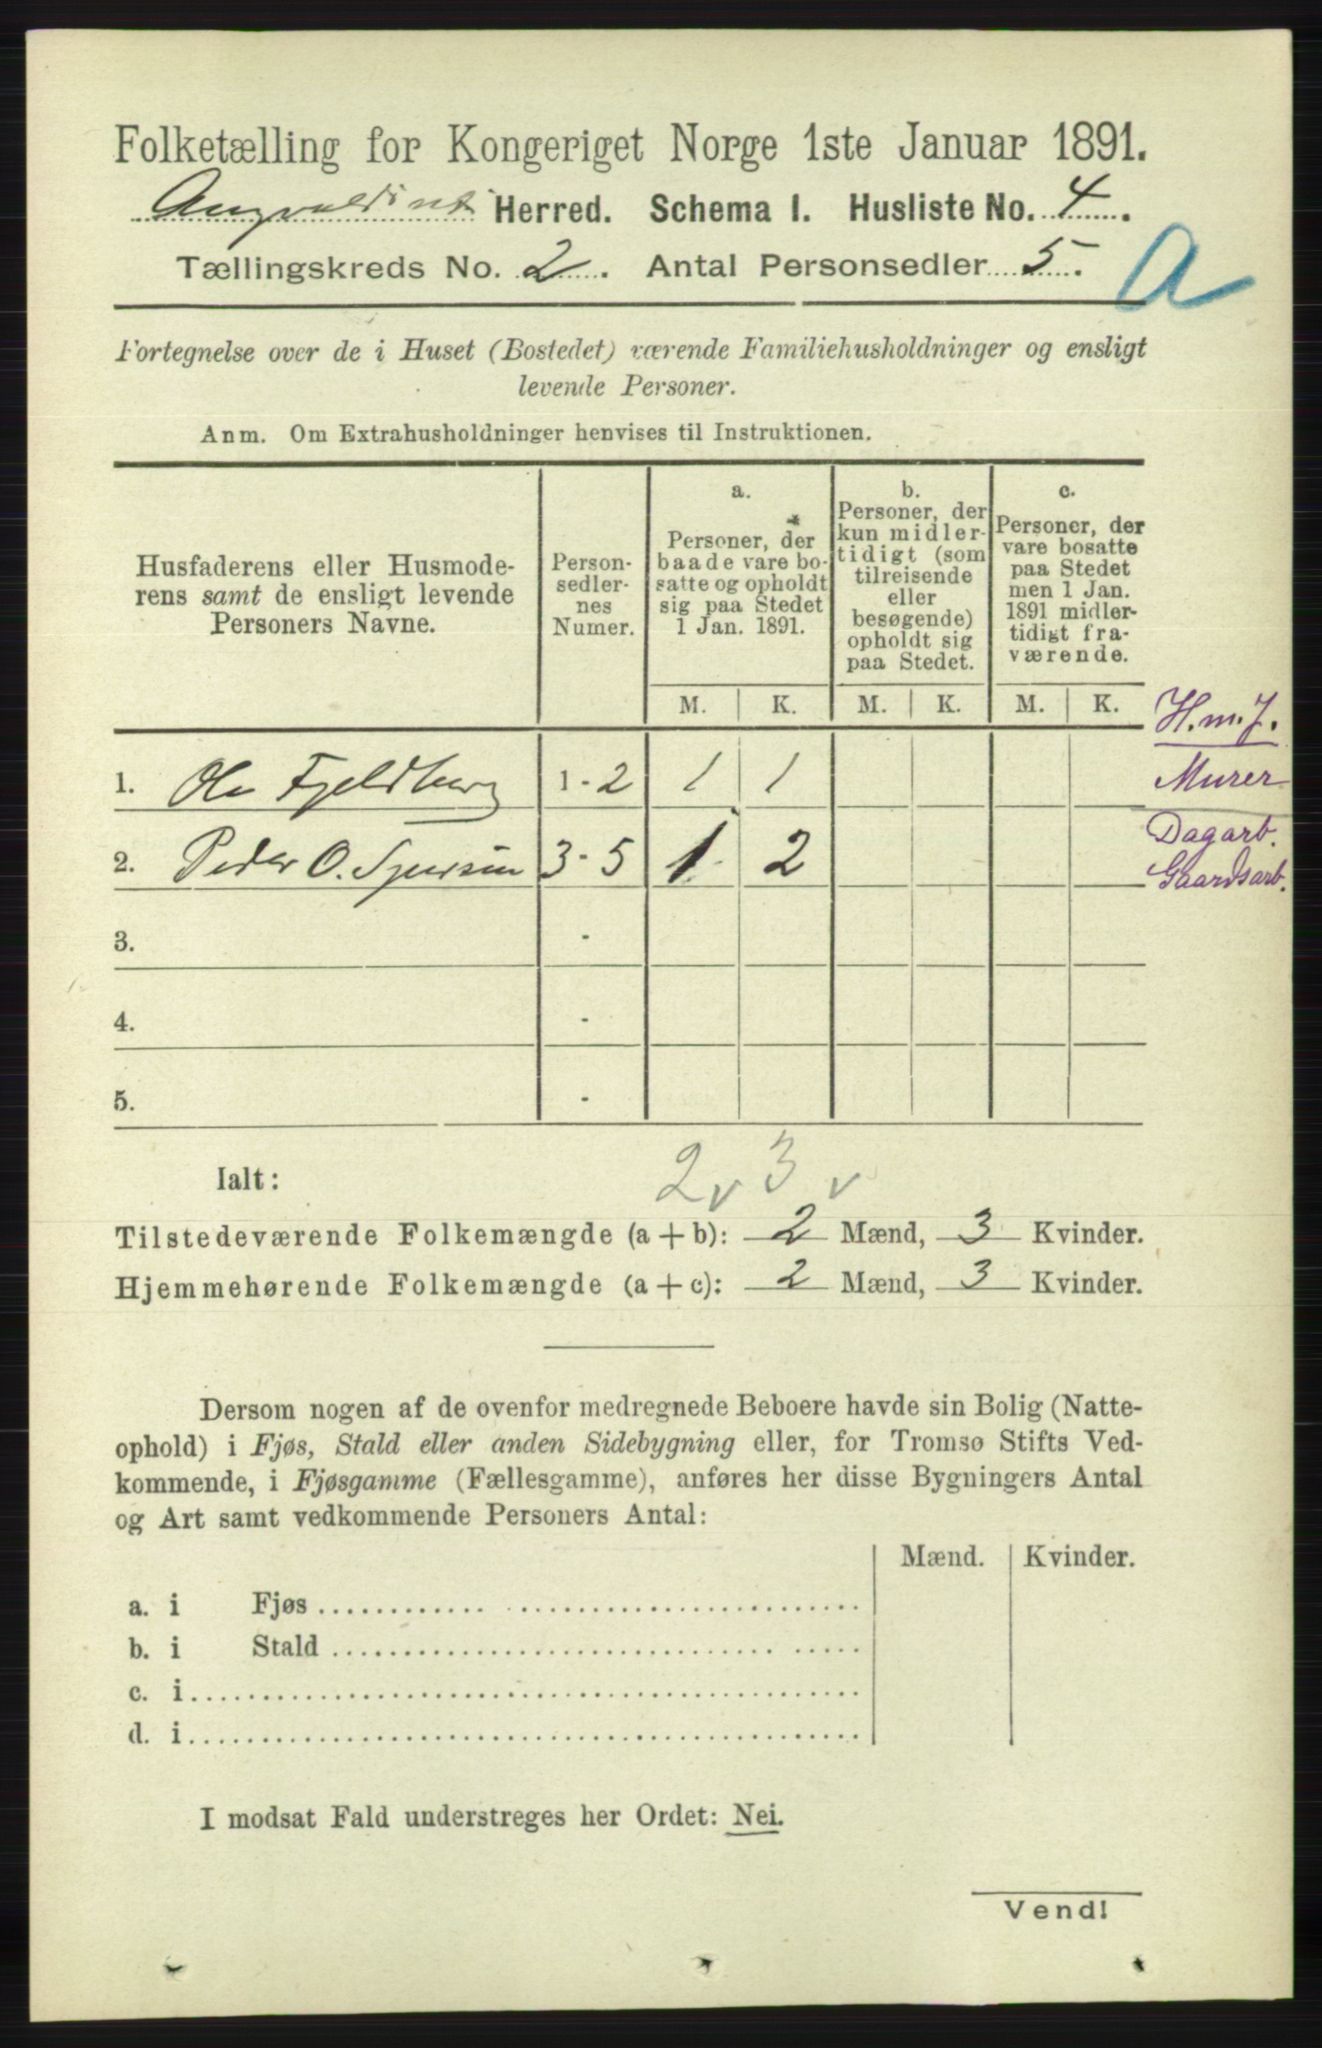 Folketælling for Kongeriget Norge 1ste Januar 1891.
Herred. Schema I. Husliste No. 4.
Tællingskreds No. 2. Antal Personsedler 5.
A
Fortegnelse over de i Huset (Bostedet) værende Familiehusholdninger og ensligt
levende Personer.
Anm. Om Extrahusholdninger henvises til Instruktionen.
Husfaderens eller Husmode-
rens samt de ensligt levende
Personers Navne.
Person-
sedler-
nes
Numer.
a.
Personer, der
baade vare bo-
satte og opholdt
sig paa Stedet
1 Jan. 1891.
b.
Personer, der
kun midler-
tidigt (som
tilreisende
eller
besøgende)
opholdt sig
paa Stedet.
c.
Personer, der
vare bosatte
paa Stedet
men 1 Jan.
1891 midler-
tidigt fra-
værende.
M. K. M. K. M. K.
H.m.J.
1. Ole Fjeldberg 1 - 2 1 1 Murer
2. Peder O. 3 - 5 1 2 Dagarb.
Gaardsarb.
3. -
4. -
5. -
Ialt: 2 v 3 v
Tilstedeværende Folkemængde (a + b): 2 Mænd, 3 Kvinder.
Hjemmehørende Folkemængde (a + c): 2 Mænd, 3 Kvinder.
Dersom nogen af de ovenfor medregnede Beboere havde sin Bolig (Natte-
ophold) i Fjøs, Stald eller anden Sidebygning eller, for Tromsø Stifts Ved-
kommende, i Fjøsgamme (Fællesgamme), anføres her disse Bygningers Antal
og Art samt vedkommende Personers Antal:
Mænd. Kvinder.
a. i Fjøs
b. i Stald
c. i
d. i
I modsat Fald understreges her Ordet: Nei.
Vend!